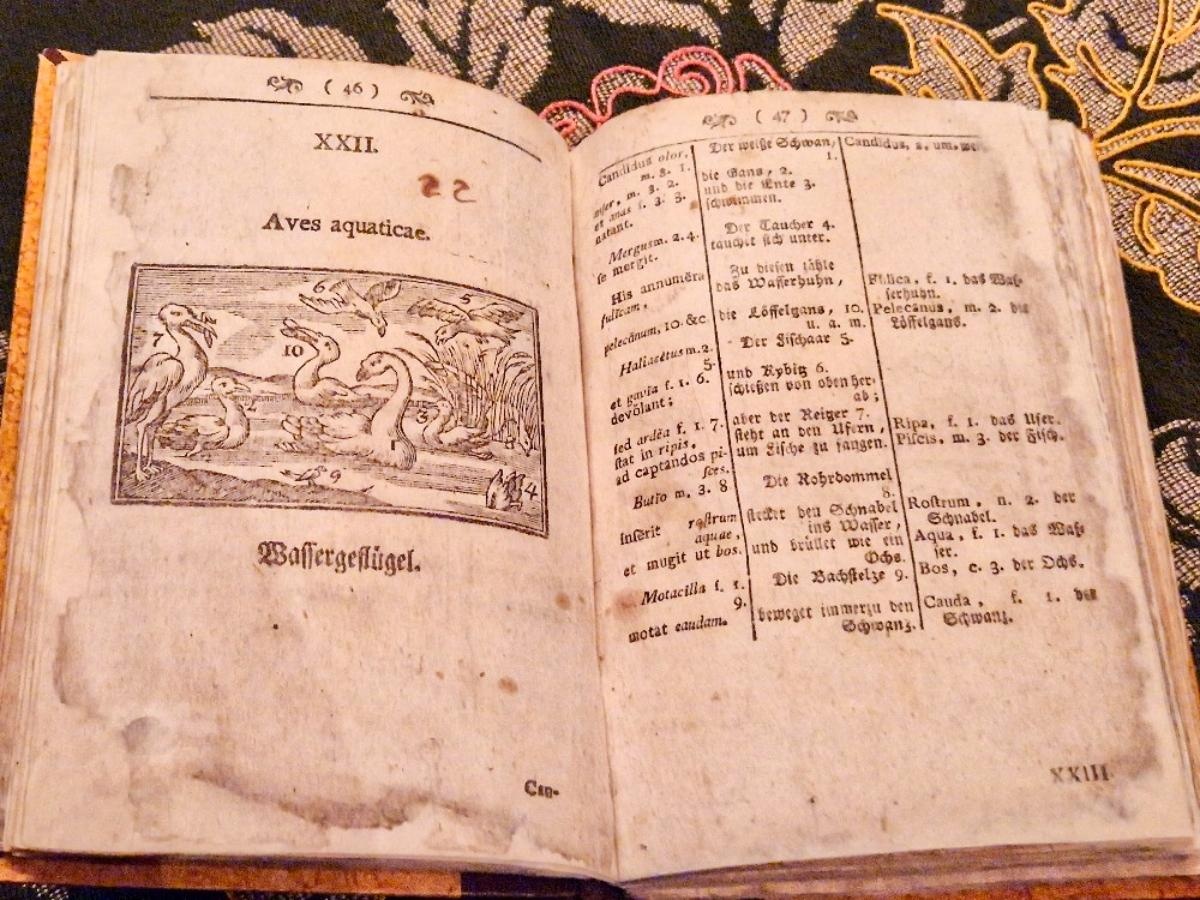 ( 46 )
XXII.
22
Aves aquaticae.
6
5
7
10
2
3
9
4
Wassergeflügel.
Can-
( 47 )
Candidus olor,
m. 3. 1.
anser, m. 3. 2.
et anas f. 3. 3.
natant.
Mergus m. 2. 4.
se mergit.
His annumëra
fulicam,
pelecänum, 10. &c.
Haliaeëtus m. 2.
5.
et gavia f. 1. 6.
devŏlant;
sed ardĕa f. 1. 7.
stat in ripis,
ad captandos pi-
sces.
Butio m. 3. 8
insĕrit rostrum
aquae,
et mugit ut bos.
Motacilla f. 1.
9.
motat caudam.
Der weiße Schwan,
1.
die Gans, 2.
und die Ente 3.
schwimmen.
Der Taucher 4.
tauchet sich unter.
Zu diesen zähle
das Wasserhuhn,
die Löffelgans, 10.
u. a. m.
Der Fischaar 5.
und Kybitz 6.
schießen von oben her-
ab;
aber der Reiger 7.
steht an den Ufern,
um Fische zu fangen.
Die Rohrdommel
8.
stecket den Schnabel
ins Wasser,
und brüllet wie ein
Ochs.
Die Bachstelze 9.
beweget immerzu den
Schwanz.
Candidus, a, um, weiß
Fulica, f. 1. das Was-
serhuhn.
Pelecänus, m. 2. die
Löffelgans.
Ripa, f. 1. das Ufer.
Piscis, m. 3. der Fisch.
Rostrum, n. 2. der
Schnabel.
Aqua, f. 1. das Was-
ser.
Bos, c. 3. der Ochs.
Cauda, f. 1. der
Schwanz.
XXIII.